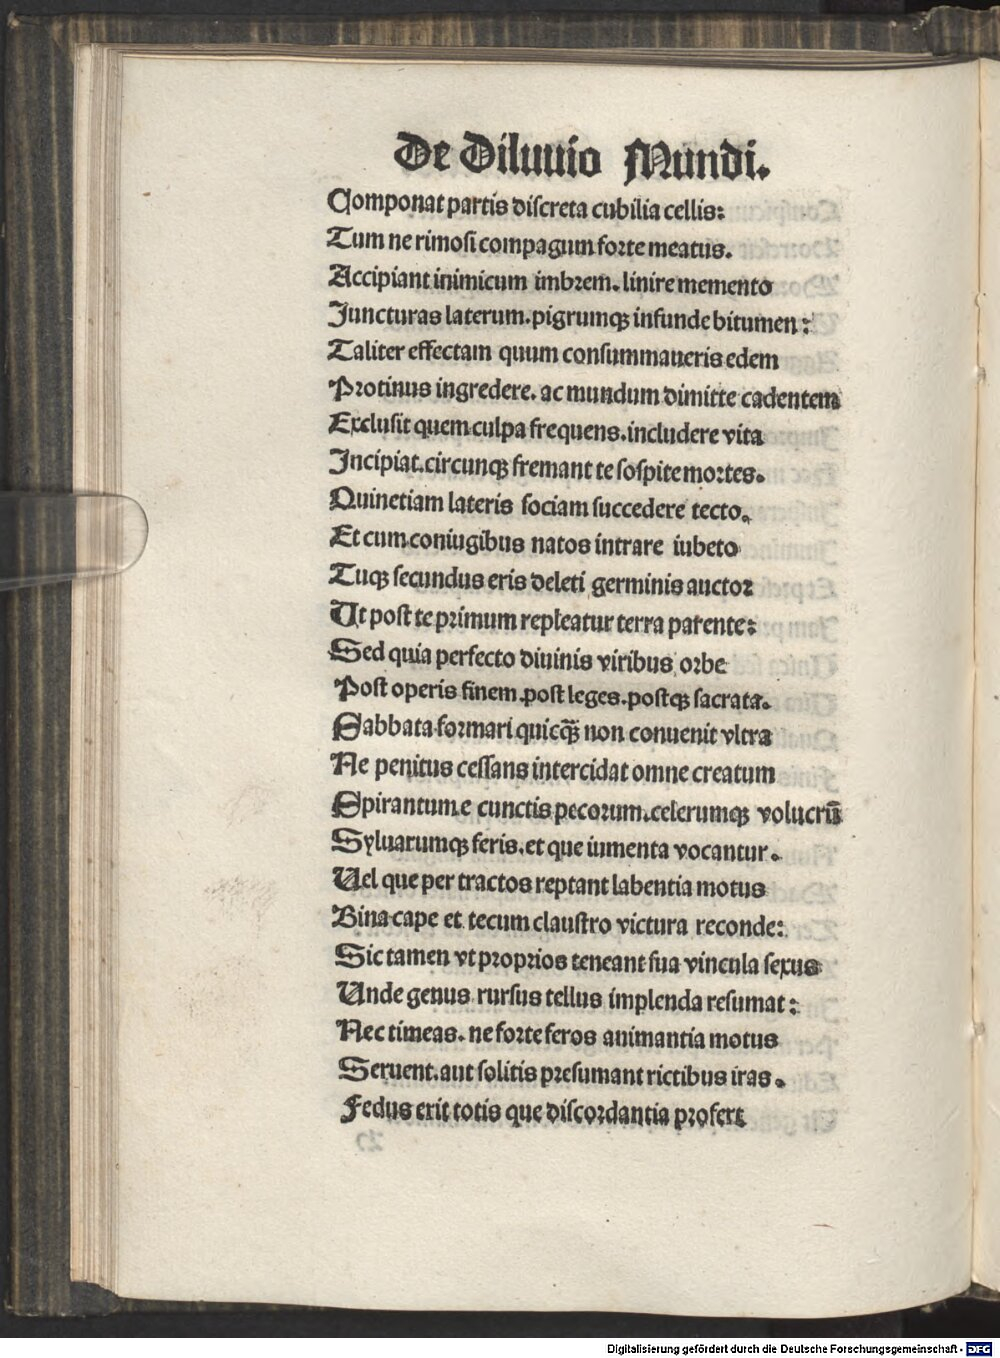 De Diluuio Mundi.
Componat partis discreta cubilia cellis:
Tum ne rimosi compagum forte meatus.
Accipiant inimicum imbrem. linire memento
Juncturas laterum. pigrumqꝫ infunde bitumen:
Taliter effectam quum consummaueris edem
Protinus ingredere. ac mundum dimitte cadentem
Exclusit quem culpa frequens. includere vita
Incipiat. circunqꝫ fremant te sospite mortes.
Quinetiam lateris sociam succedere tecto.
Et cum coniugibus natos intrare iubeto
Tuqꝫ secundus eris deleti germinis auctor
Ut post te primum repleatur terra parente:
Sed quia perfecto diuinis viribus orbe
Post operis finem. post leges. postqꝫ sacrata.
Sabbata formari quicqꝫ̃ non conuenit vltra
Ne penitus cessans intercidat omne creatum
Spirantum. e cunctis pecorum. celerumqꝫ volucrū
Syluarumqꝫ feris. et que iumenta vocantur.
Uel que per tractos reptant labentia motus
Bina cape et tecum claustro victura reconde:
Sic tamen vt proprios teneant sua vincula sexus
Unde genus rursus tellus implenda resumat:
Nec timeas. ne forte feros animantia motus
Seruent. aut solitis presumant rictibus iras.
Fedus erit totis que discordantia profert
Digitalisierung gefördert durch die Deutsche Forschungsgemeinschaft - DFG